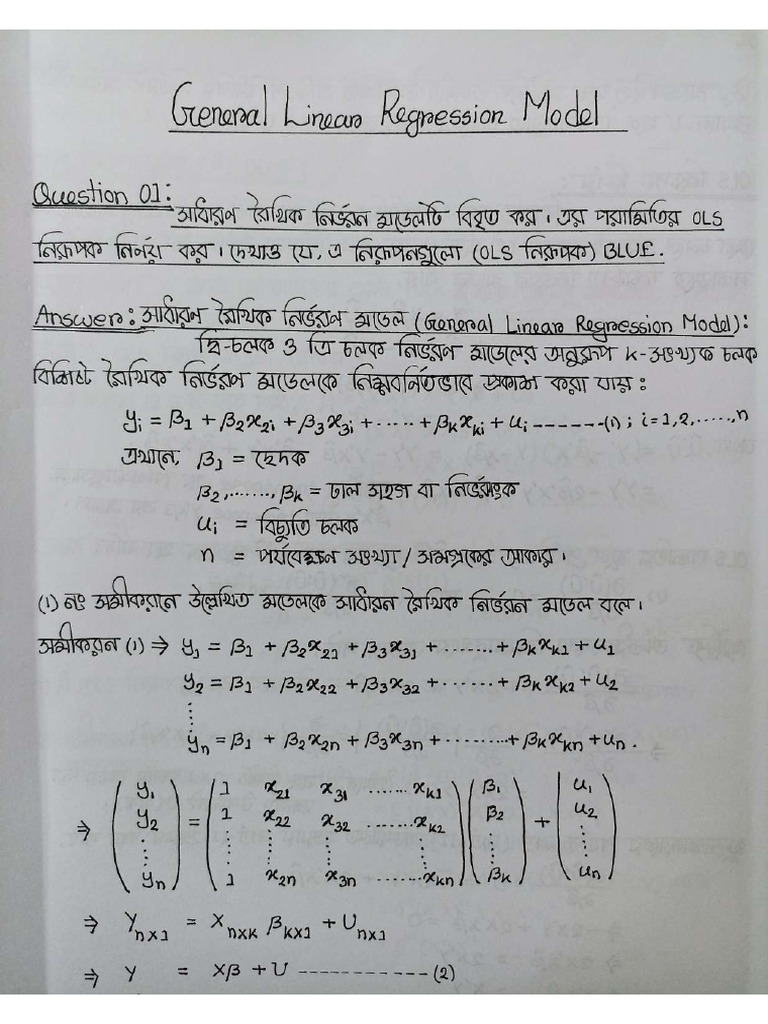 General Linear Regression Model
Question 01: সাধারণ রৈখিক নির্ভরন মডেলটি বিবৃত কর। এর পরামিতির OLS
নিরূপক নির্ণয় কর। দেখাও যে, এ নিরূপকগুলো (OLS নিরূপক) BLUE.
Answer: সাধারন রৈখিক নির্ভরন মডেল (General Linear Regression Model):
দ্বি-চলক ও ত্রি চলক নির্ভরন মডেলের অনুরূপ k-সংখ্যক চলক
বিশিষ্ট রৈখিক নির্ভরণ মডেলকে নিম্নবর্নিতভাবে প্রকাশ করা যায়:
yᵢ = β₁ + β₂x₂ᵢ + β₃x₃ᵢ + ..... + βₖxₖᵢ + uᵢ -------(1); i=1,2,.....,n
এখানে, β₁ = ছেদক
β₂,......,βₖ = ঢাল সহগ বা নির্ভরাংক
uᵢ = বিচ্যুতি চলক
n = পর্যবেক্ষন সংখ্যা / নমুনার আকার।
(1) নং সমীকরনে উল্লেখিত মডেলকে সাধারন রৈখিক নির্ভরন মডেল বলে।
সমীকরন (1) ⇒ y₁ = β₁ + β₂x₂₁ + β₃x₃₁ + ....... + βₖxₖ₁ + u₁
y₂ = β₁ + β₂x₂₂ + β₃x₃₂ + ...... + βₖxₖ₂ + u₂
⋮
yₙ = β₁ + β₂x₂ₙ + β₃x₃ₙ + ......... + βₖxₖₙ + uₙ.
⇒ (y₁ y₂ ⋮ yₙ) = (1 x₂₁ x₃₁ ...... xₖ₁
1 x₂₂ x₃₂ ...... xₖ₂
⋮ ⋮ ⋮ ⋮
1 x₂ₙ x₃ₙ ...... xₖₙ) (β₁ β₂ ⋮ βₖ) + (u₁ u₂ ⋮ uₙ)
⇒ Yₙₓ₁ = Xₙₓₖ βₖₓ₁ + Uₙₓ₁
⇒ Y = Xβ + U ----------- (2)